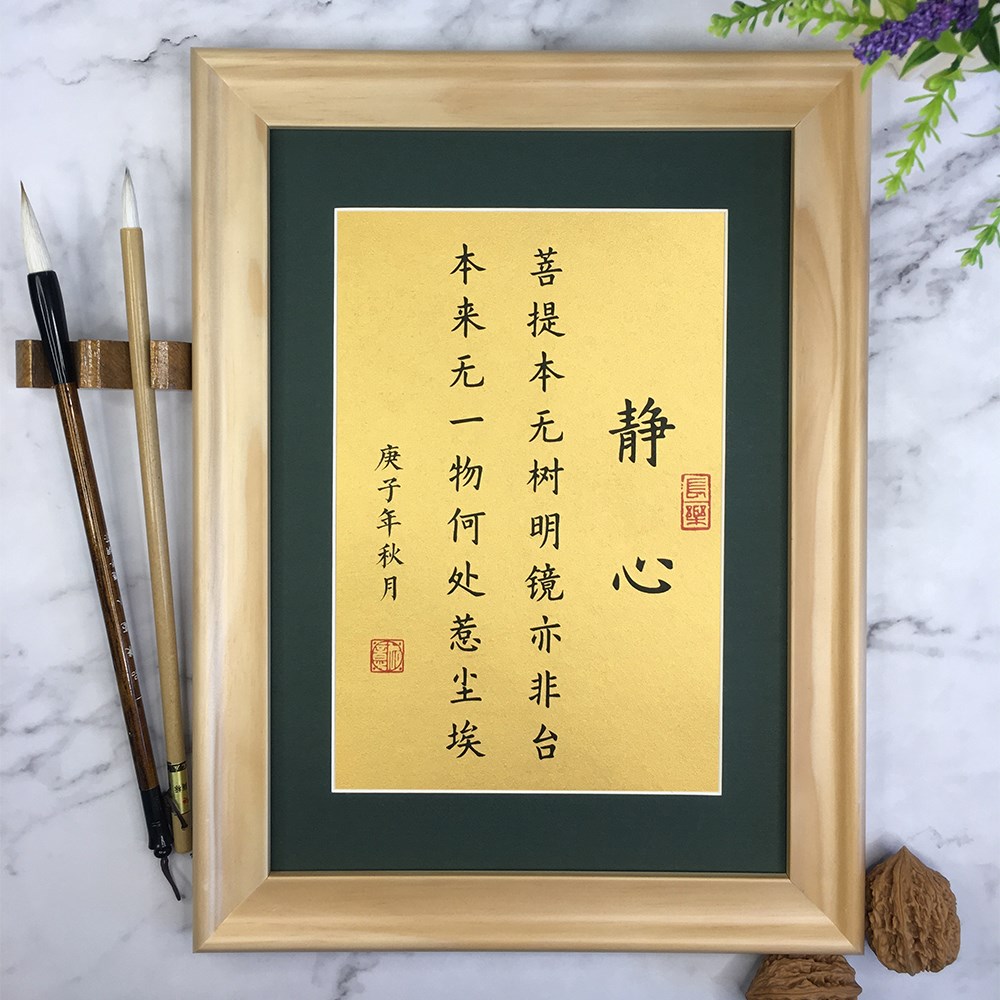 静心
长乐
菩提本无树明镜亦非台
本来无一物何处惹尘埃
庚子年秋月